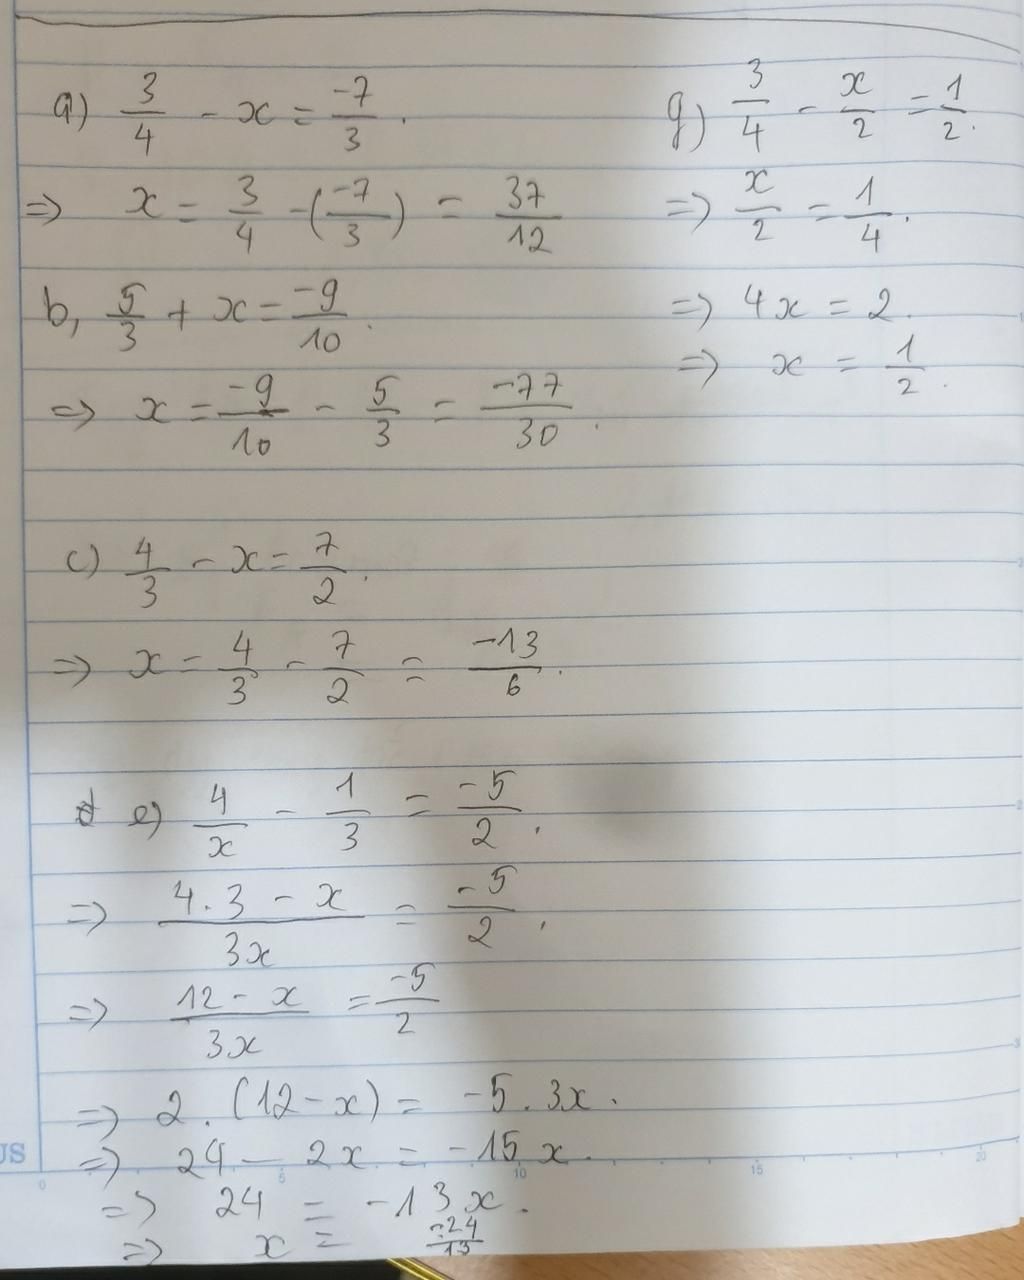 a) 3/4 - x = -7/3.
=> x = 3/4 - (-7/3) = 37/12
b, 5/3 + x = -9/10.
=> x = -9/10 - 5/3 = -77/30.
c) 4/3 - x = 7/2.
=> x = 4/3 - 7/2 = -13/6.
d e) 4/x - 1/3 = -5/2.
=> 4.3 - x/3x = -5/2.
=> 12 - x/3x = -5/2
=> 2.(12 - x) = -5.3x.
=> 24 - 2x = -15x.
=> 24 = -13x.
=> x = -24/13
g) 3/4 - x/2 = 1/2.
=> x/2 = 1/4.
=> 4x = 2.
=> x = 1/2.
US
0 5 10 15 20